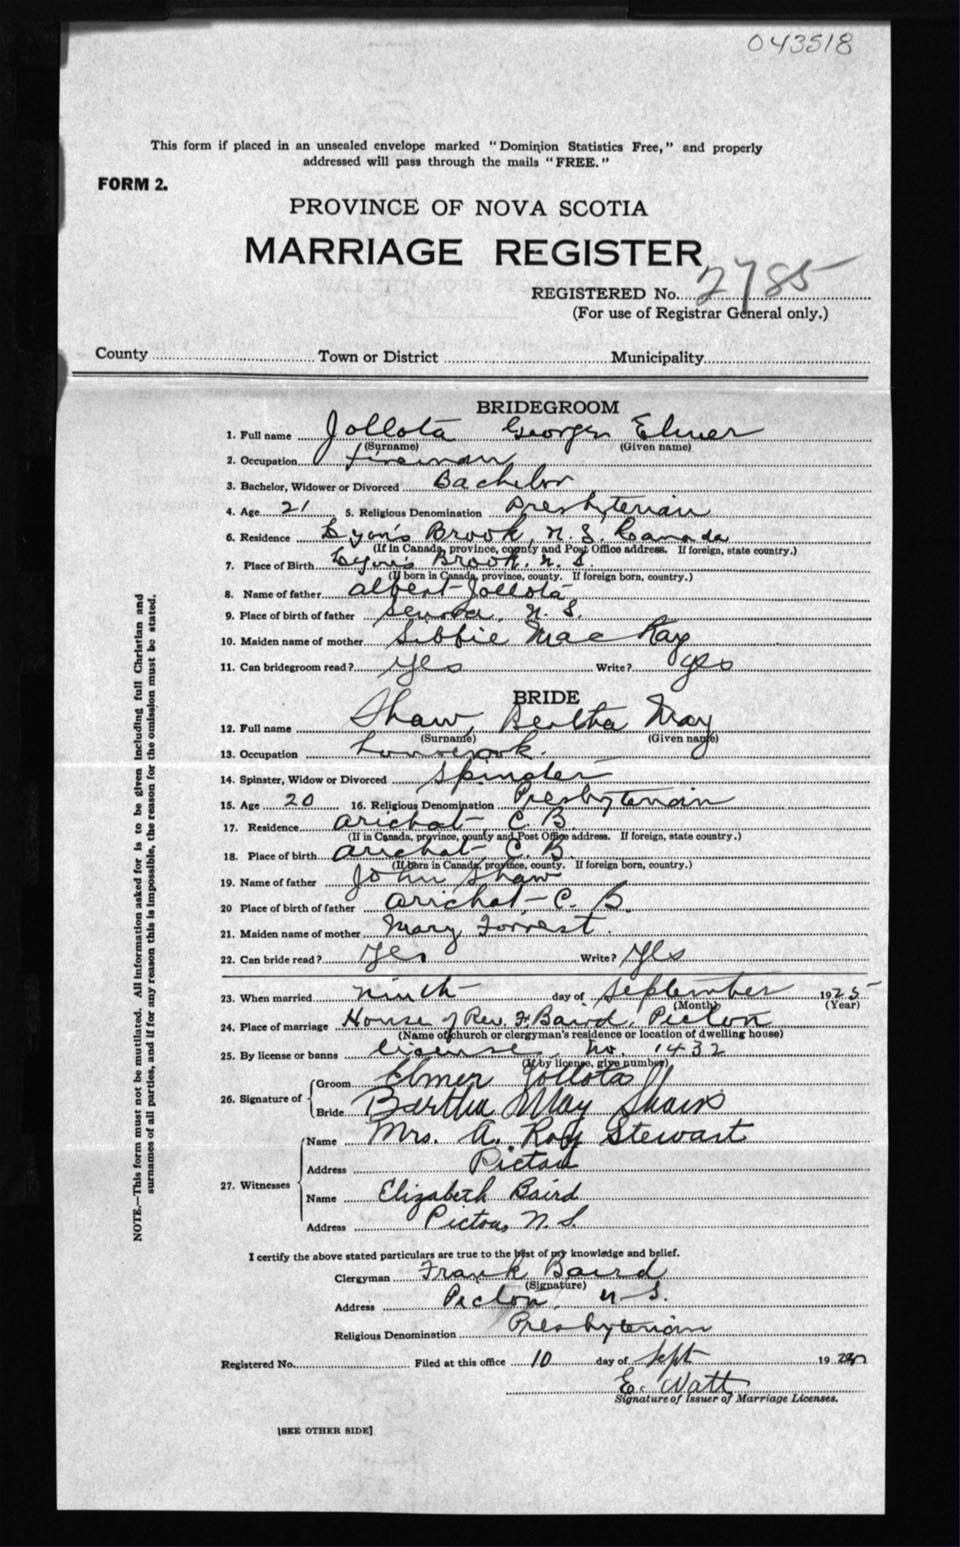 043518
This form if placed in an unsealed envelope marked "Dominion Statistics Free," and properly
addressed will pass through the mails "FREE."
FORM 2.
PROVINCE OF NOVA SCOTIA
MARRIAGE REGISTER
REGISTERED No. 2785
(For use of Registrar General only.)
County Town or District Municipality
BRIDEGROOM
1. Full name Jollota George Elmer
(Surname) (Given name)
2. Occupation Fireman
3. Bachelor, Widower or Divorced Bachelor
4. Age 21 5. Religious Denomination Presbyterian
6. Residence Lyon's Brook, N. S. Canada
(If in Canada, province, county and Post Office address. If foreign, state country.)
7. Place of Birth Lyon's Brook. N. S.
(If born in Canada, province, county. If foreign born, country.)
8. Name of father Albert Jollota
9. Place of birth of father N. S.
10. Maiden name of mother Sibbie MacKay
11. Can bridegroom read? Yes Write? yes
BRIDE
12. Full name Shaw, Bertha May
(Surname) (Given name)
13. Occupation
14. Spinster, Widow or Divorced Spinster
15. Age 20 16. Religious Denomination Presbyterian
17. Residence Arichat, C. B.
(If in Canada, province, county and Post Office address. If foreign, state country.)
18. Place of birth Arichat, C. B.
(If born in Canada, province, county. If foreign born, country.)
19. Name of father John Shaw
20 Place of birth of father Arichat, C. B.
21. Maiden name of mother Mary Forrest.
22. Can bride read? Yes Write? Yes
23. When married ninth day of September 1925
(Month) (Year)
24. Place of marriage House of Rev. F. Baird, Pictou
(Name of church or clergyman's residence or location of dwelling house)
25. By license or banns License no. 1432
(If by license, give number)
26. Signature of Groom Elmer Jollota
Bride Bertha May Shaw
27. Witnesses Name Mrs. A. Roy Stewart
Address Pictou
Name Elizabeth Baird
Address Pictou, N. S.
I certify the above stated particulars are true to the best of my knowledge and belief.
Clergyman Frank Baird
(Signature)
Address Pictou, N. S.
Religious Denomination Presbyterian
Registered No. Filed at this office 10 day of Sept 19
E. Watt
Signature of Issuer of Marriage Licenses.
[SEE OTHER SIDE]
NOTE.—This form must not be mutilated. All information asked for is to be given including full Christian and
surnames of all parties, and if for any reason this is impossible, the reason for the omission must be stated.